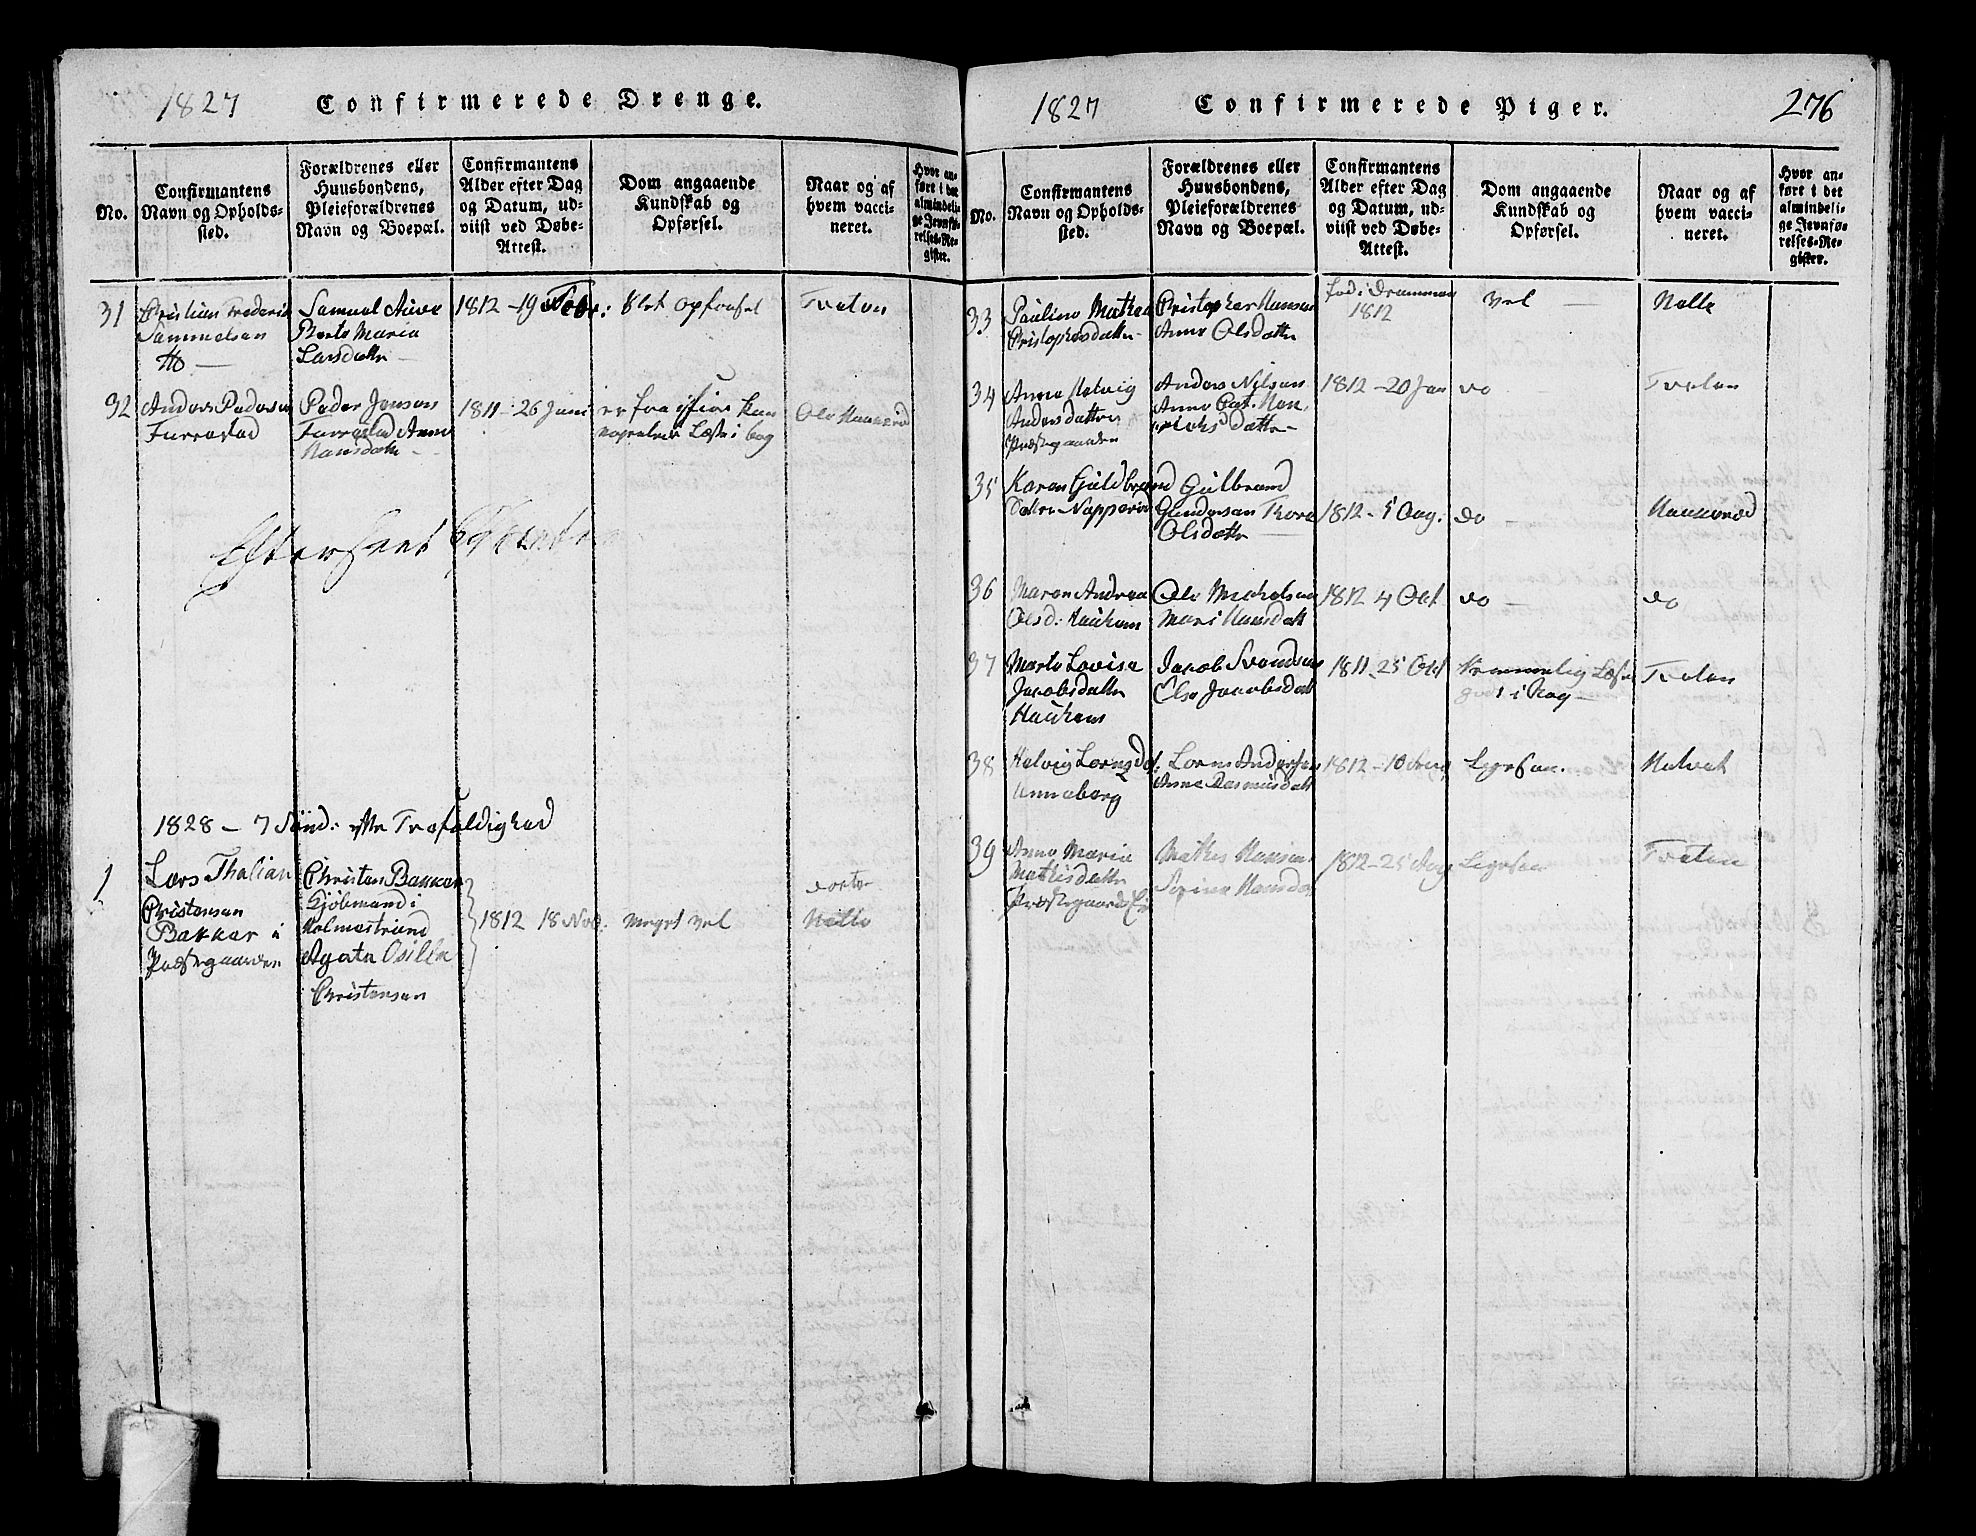 1827 Confirmerede Drenge.
No.
Confirmantens
Navn og Opholds-
sted.
Forældrenes eller
Huusbondens,
Pleieforældrenes
Navn og Boepæl.
Confirmantens
Alder efter Dag
og Datum, ud-
viist ved Døbe-
Attest.
Dom angaaende
Kundskab og
Opførsel.
Naar og af
hvem vacci-
neret.
Hvor an-
ført i det
almindeli-
ge Jevnfø-
relses-Re-
gister.
31
Christian Frederik
Sammelsen
Samuel
Berte Maria
Larsdatter
1812 - 19 Febr:
slet opførsel
Tveten
32
Anders Pedersen
Furrestad
Peder Jensen
Furrestad Anne
Hansdatter
1811 - 26 Juni
Læse i bog
Ole Haanerød
Efterseet
1828 - 7 Sønd: efter Trefoldighed
1
Lars Thalian
Christensen
Bakker i
Præstegaarden
Christen Bakker
Kjøbmand i
Holmestrand
Agata Osilla
Christensen
1812 18 Nov:
meget vel
docter
Nølle
1827 Confirmerede Piger. 276
No.
Confirmantens
Navn og Opholds-
sted.
Forældrenes eller
Huusbondens,
Pleieforældrenes
Navn og Boepæl.
Confirmantens
Alder efter Dag
og Datum, ud-
viist ved Døbe-
Attest.
Dom angaaende
Kundskab og
Opførsel.
Naar og af
hvem vacci-
neret.
Hvor an-
ført i det
almindeli-
ge Jevnfø-
relses-Re-
gister.
33
Pauline Mathea
Christophersdatter
Christopher Hansen
Anne Olsdatter
fød i Drammen
1812
vel
Nølle
34
Anne Helvig
Andersdatter
Præstegaarden
Anders Nilsen
Anne Cat. Hen-
richsdatter
1812 - 20 Jan
do
Tveten
35
Karen Guldbrand
Datter Napperød
Gulbrand
Gundersen Thore
Olsdatter
1812 - 5 Aug.
do
Haanerød
36
Maren Andrea
Olsd: Hauchem
Ole Michelsen
Mari Hansdatt
1812 4 Oct
do
do
37
Marte Lovisa
Jacobsdatter
Hauchem
Jacob Svendsen
Else Jacobsdatt
1811 25 Oct
Læser
godt i Bog
Tveten
38
Helvig Lornsd:
Unneberg
Lorns Andersen
Anne Rasmusdatt
1812 - 10 Aug
Ligesaa.
Holvet
39
Anne Maria
Mathisdatter
Præstegaards Ei
Mathis Hansen
Serine Hansda
1812 - 25 Aug
Ligesaa
Tveten